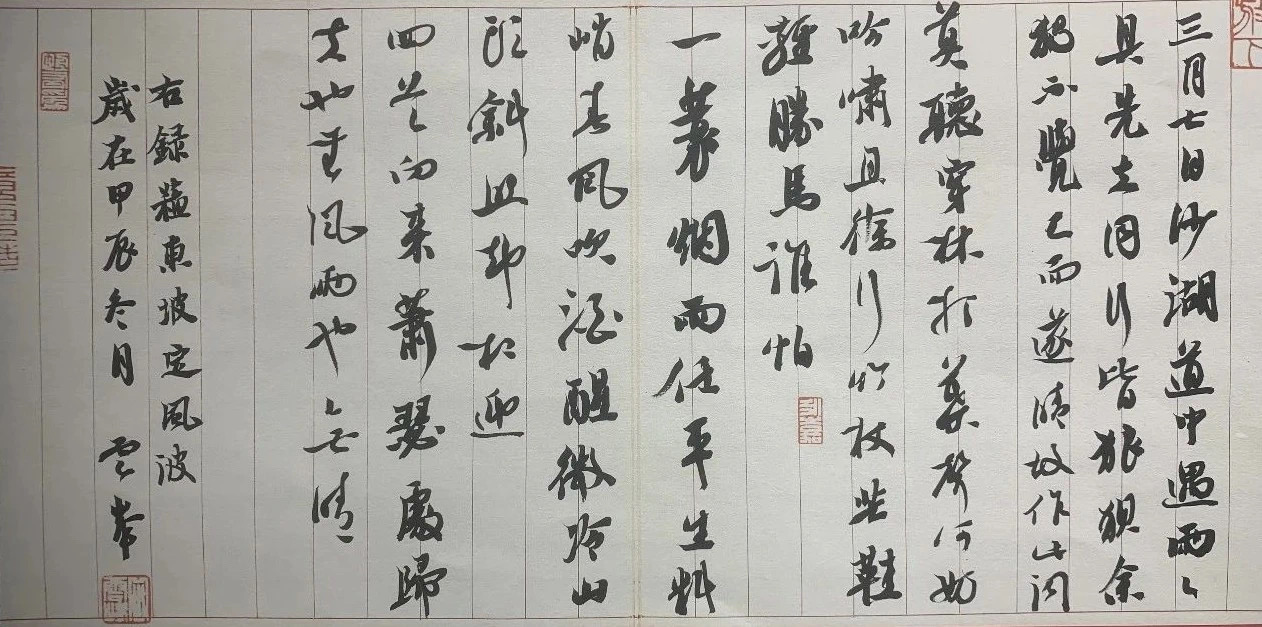 三月七日沙湖道中遇雨〻
具先去同行皆狼狽余
獨不覺已而遂晴故作此詞
莫聽穿林打葉聲何妨
吟嘯且徐行竹杖芒鞋
輕勝馬誰怕
一蓑烟雨任平生料
峭春風吹酒醒微冷山
頭斜照却相迎
回首向來蕭瑟處歸
去也無風雨也無晴
右録蘓東坡定風波
歲在甲辰冬月 雲峯